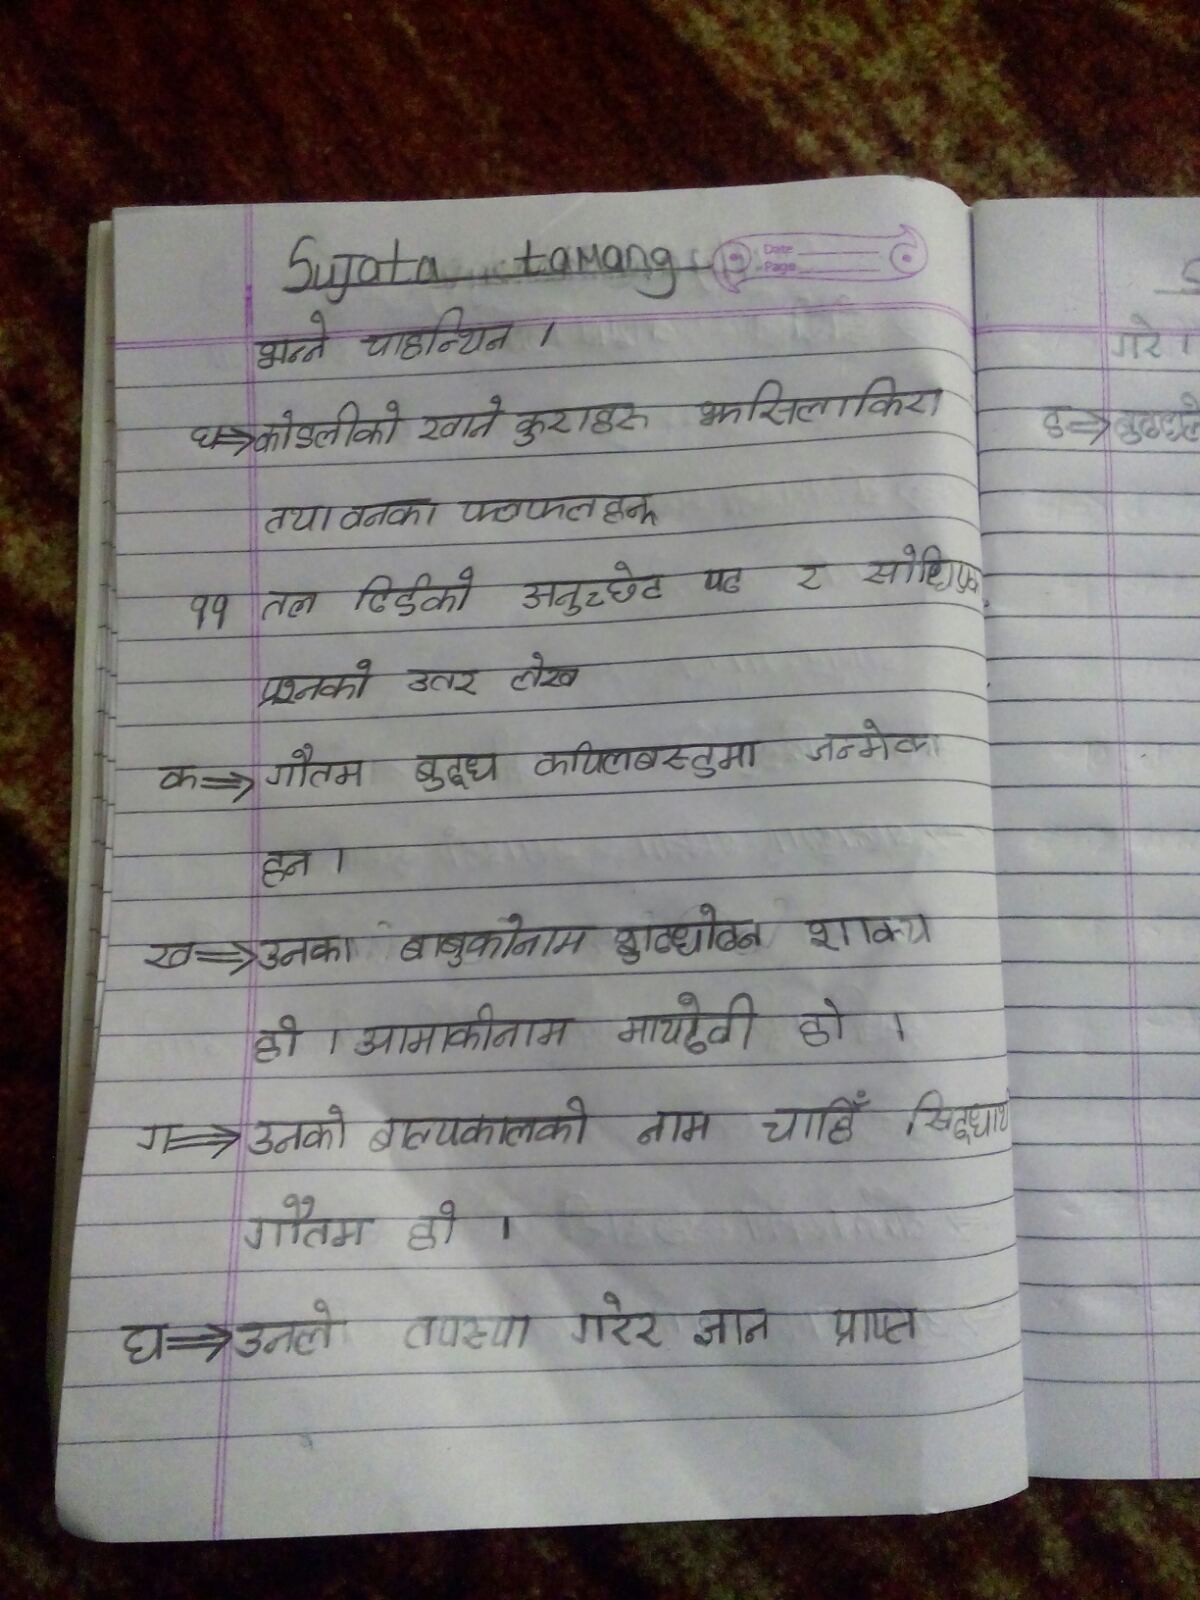 Sujata tamang
Date
Page
भन्ने चाहन्थिन ।
घ⇒कोइलीको खाने कुराहरु झुसिलाकिरा
तथा वनका फलफूलहरू
११ तल दिईको अनुच्छेद पढ र सोधिएका
प्रश्नको उतर लेख
क⇒गौतम बुद्ध कपिलबस्तुमा जन्मेका
हुन ।
ख⇒उनका बाबुकोनाम शुद्धोदन शाक्य
हो । आमाकोनाम मायदेवी हो ।
ग⇒उनको बाल्यकालको नाम चाहिँ सिद्धार्थ
गौतम हो ।
घ⇒उनले तपस्या गरेर ज्ञान प्राप्त
गरे ।
ङ⇒बुद्धले